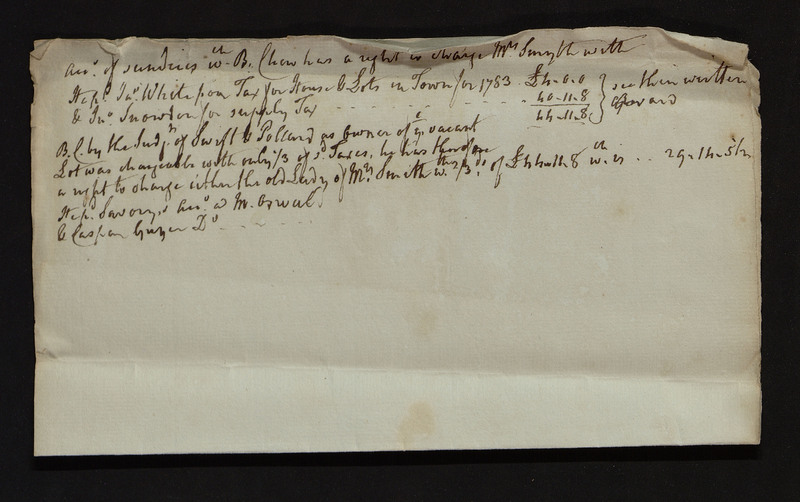 Acc.t of sundries wch B. Chew has a right to charge Mrs Smyth with
He p.d Ja.s White poor Tax for House & Lots in Town for 1783 . £4 . 0 . 0
& Jn.o Snowdon for supply Tax - - - - - 40 .. 11 .. 8
44 - 11 .. 8
see thin written award
B. C. by the Judg.t of Swift & Pollard as owner of ye vacant
Lot was chargeable with only 1/3 of s.d Taxes, he has therefore
a right to charge either the old Lady or Mrs Smith wth 2/3.ds of £44..11..8 wch is .. 29 .. 14 .. 5 1/2
He p.d Savory's acc.t to M. Oswald
& Caspar Guyer D.o - - - -